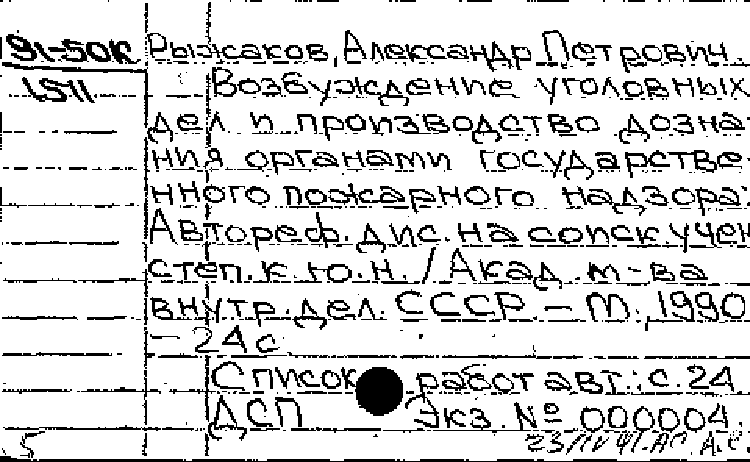 91-50К Рыжаков, Александр Петрович
1511 Возбуждение уголовных
дел и производство дозна-
ния органами государстве-
нного пожарного надзора:
Автореф. дис. на соиск. учен
степ. к. ю. н. / Акад. м-ва
внутр. дел. СССР. – М., 1990
– 24 с
Список работ авт.: с. 24
ДСП Экз. № 000004.
5